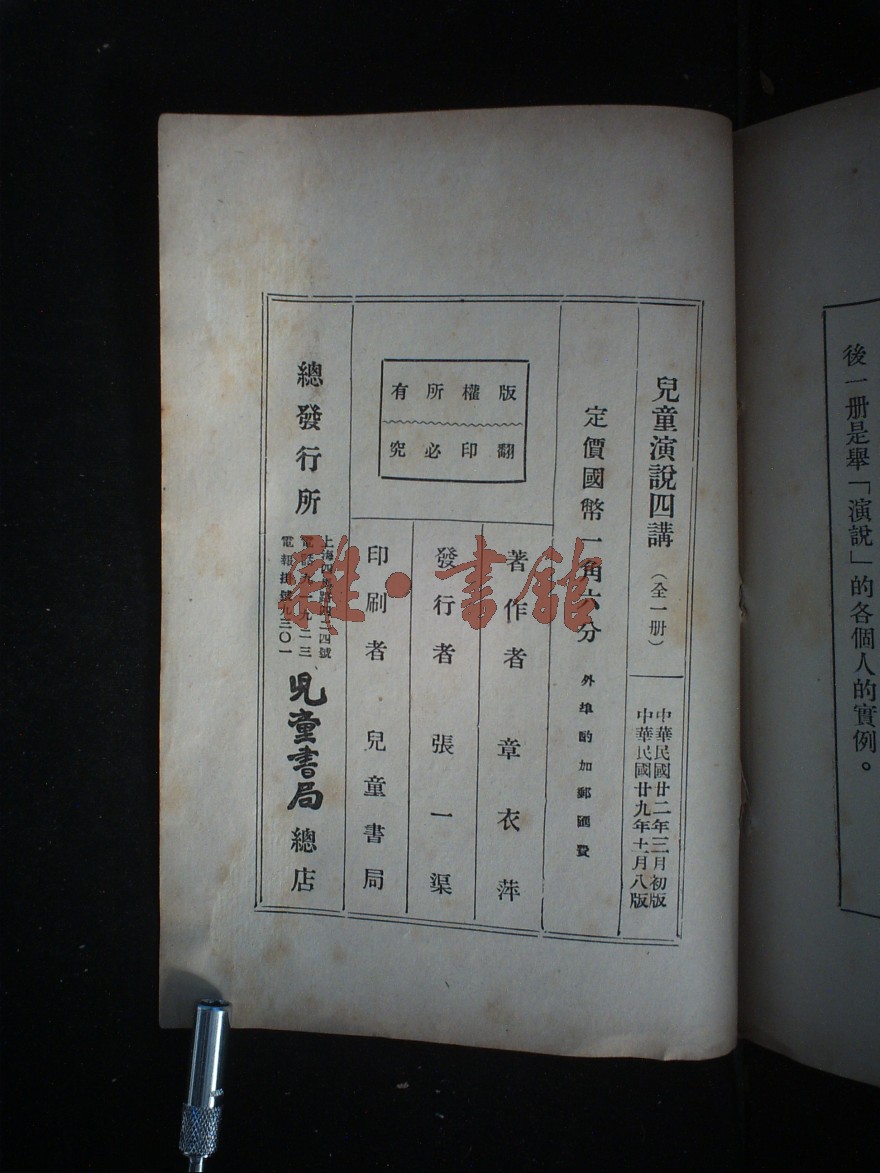 後一册是舉「演說」的各個人的實例。
兒童演說四講（全一册）
中華民國廿二年三月初版
中華民國廿九年十一月八版
定價國幣一角六分
外埠酌加郵匯費
版權所有
翻印必究
著作者 章衣萍
發行者 張一渠
印刷者 兒童書局
總發行所
上海四馬路四二四號
電話九一九二三
電報掛號九三〇一
兒童書局總店
雜·書館